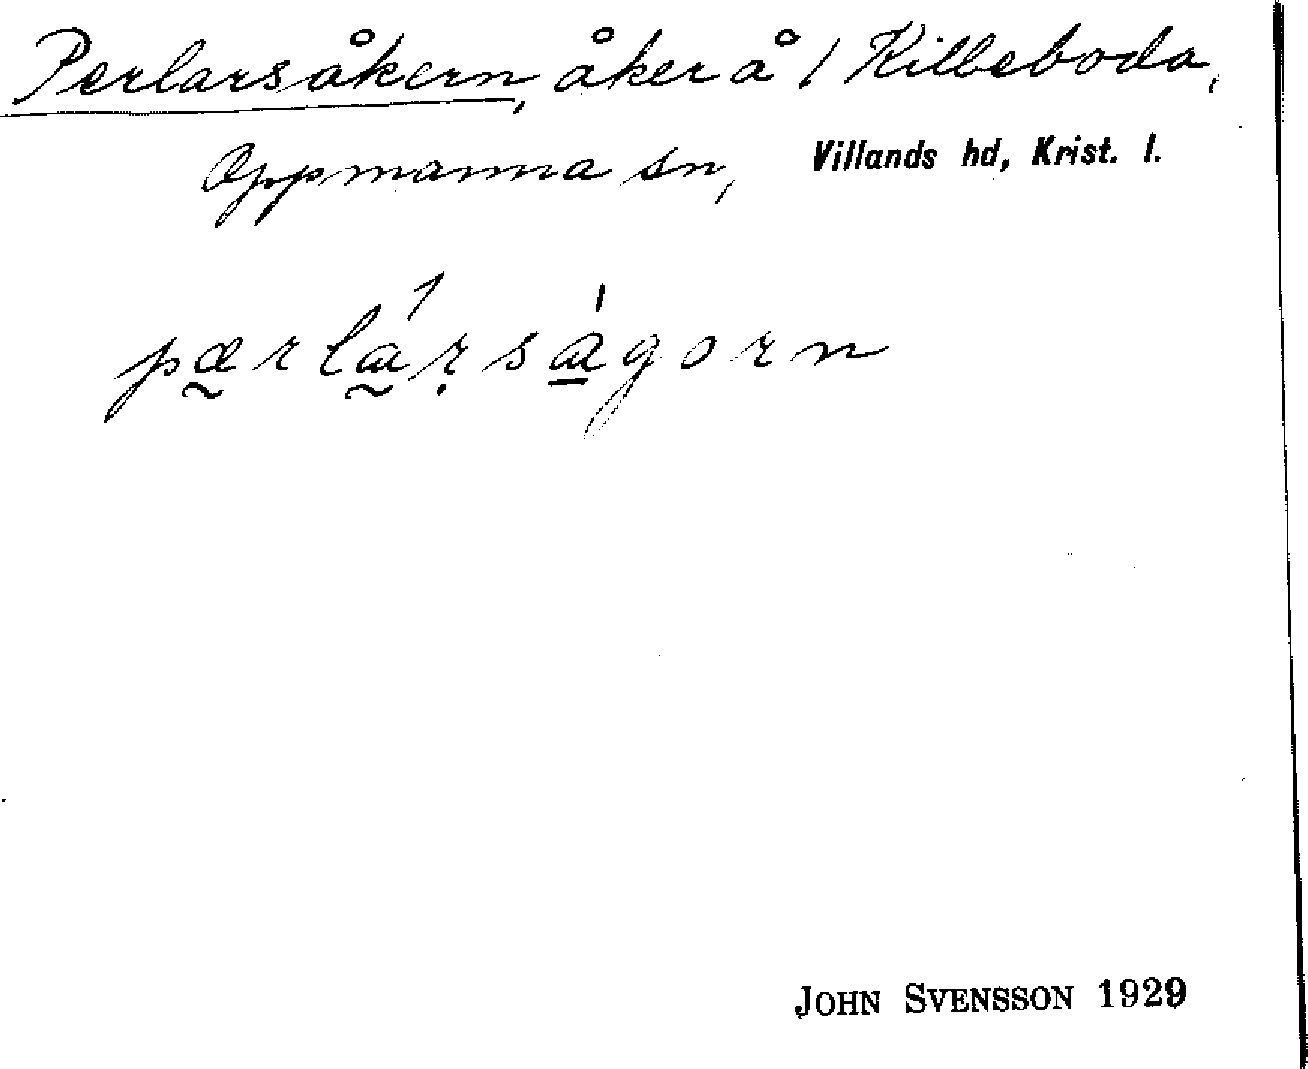 Perlarsåkern, åker å 1 Killeboda,
Oppmanna sn, Villands hd, Krist. l.
pærlárságorn
JOHN SVENSSON 1929